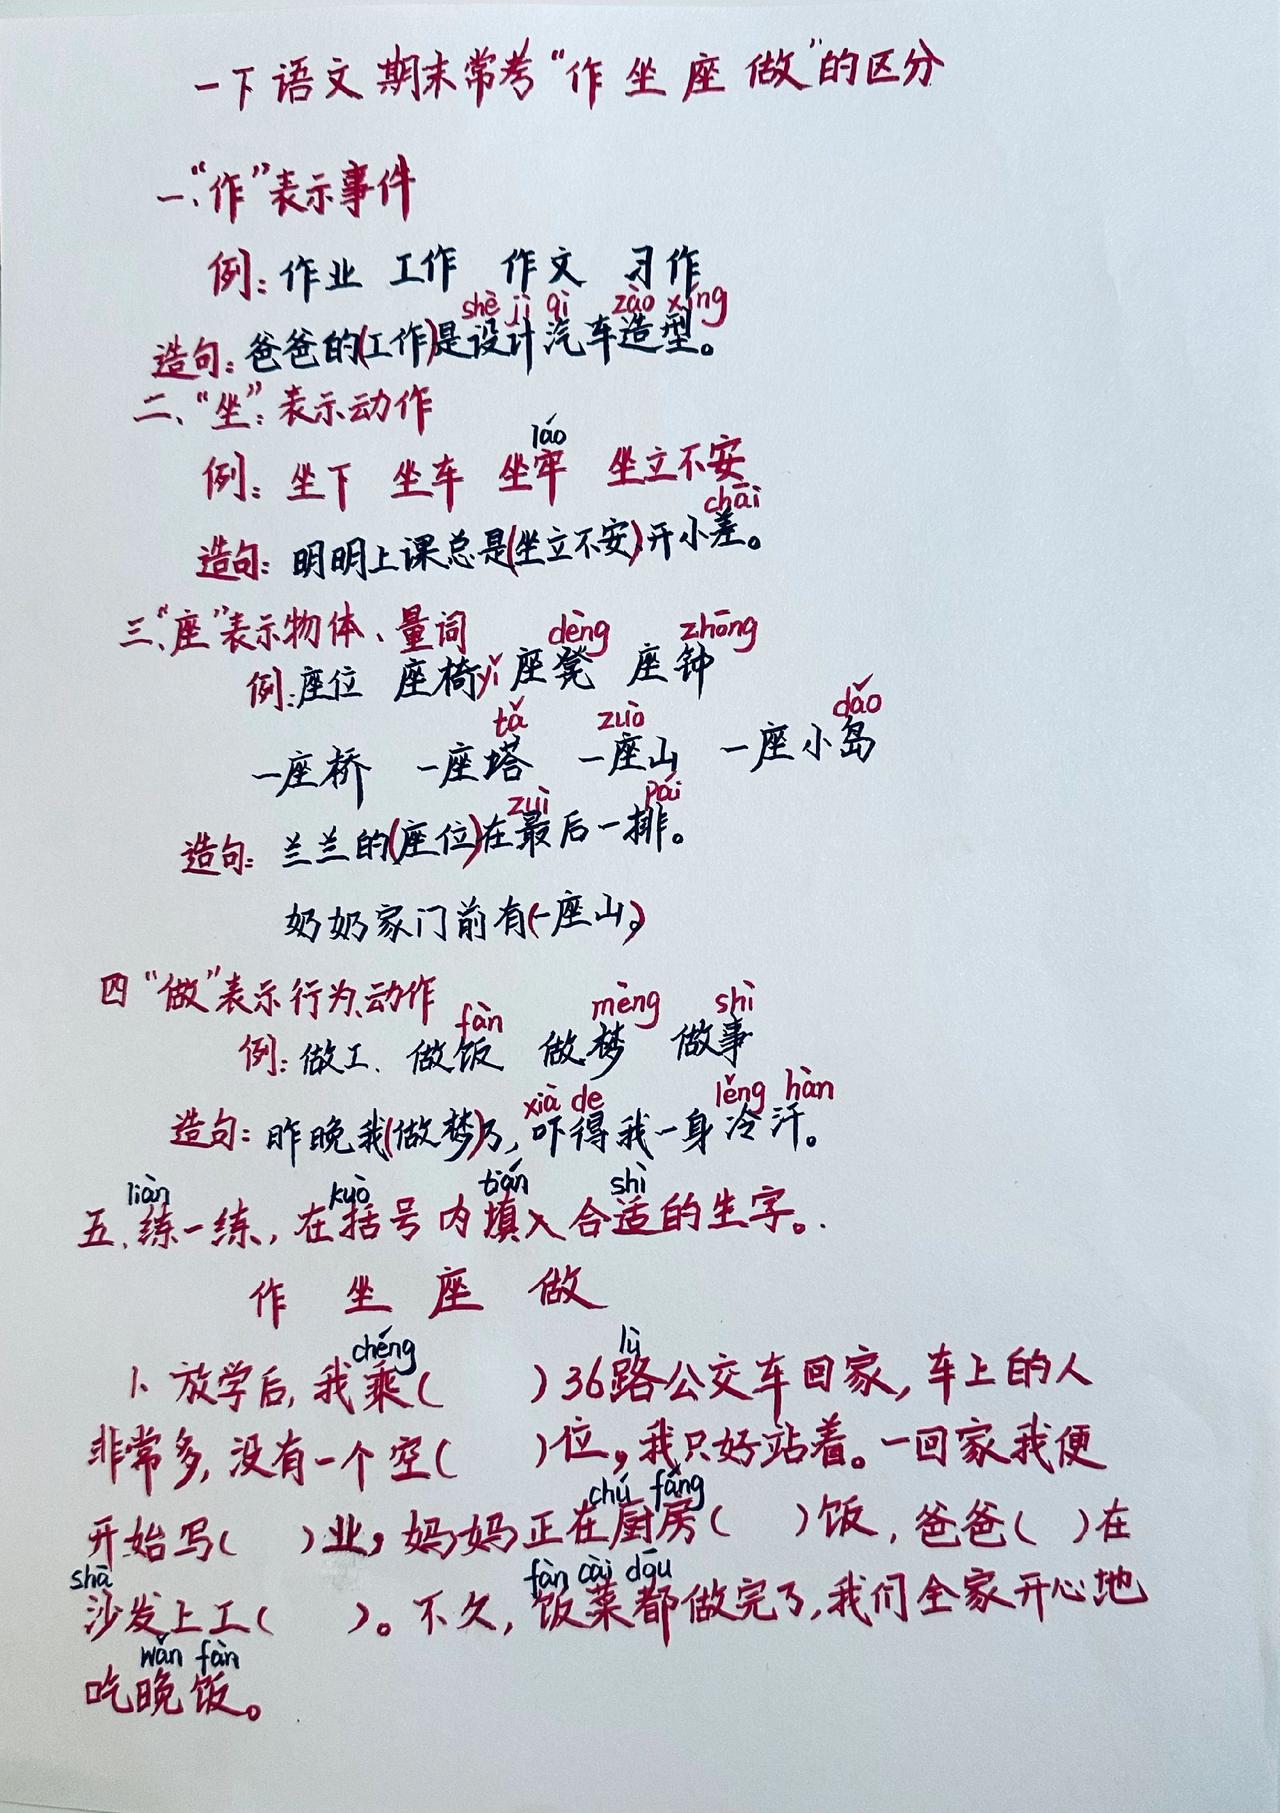 一下语文期末常考“作 坐 座 做”的区分
一、“作”表示事件
例：作业 工作 作文 习作
shè jì qì zào xíng
造句：爸爸的(工作)是设计汽车造型。
二、“坐”：表示动作
láo
例：坐下 坐车 坐牢 坐立不安
chāi
造句：明明上课总是(坐立不安)开小差。
三、“座”表示物体、量词
dèng zhōng
例：座位 座椅yǐ 座凳 座钟
tǎ zuò dǎo
一座桥 一座塔 一座山 一座小岛
zuì pái
造句：兰兰的(座位)在最后一排。
奶奶家门前有(一座山。)
四“做”表示行为、动作
fàn mèng shì
例：做工、做饭 做梦 做事
xià de lěng hàn
造句：昨晚我(做梦)了，吓得我一身冷汗。
liàn kuò tián shì
五、练一练，在括号内填入合适的生字。
作 坐 座 做
chéng lù
1、放学后，我乘( )36路公交车回家，车上的人
非常多，没有一个空( )位，我只好站着。一回家我便
chú fáng
开始写( )业，妈妈正在厨房( )饭，爸爸( )在
shā fàn cài dōu
沙发上工( )。不久，饭菜都做完了，我们全家开心地
wǎn fàn
吃晚饭。